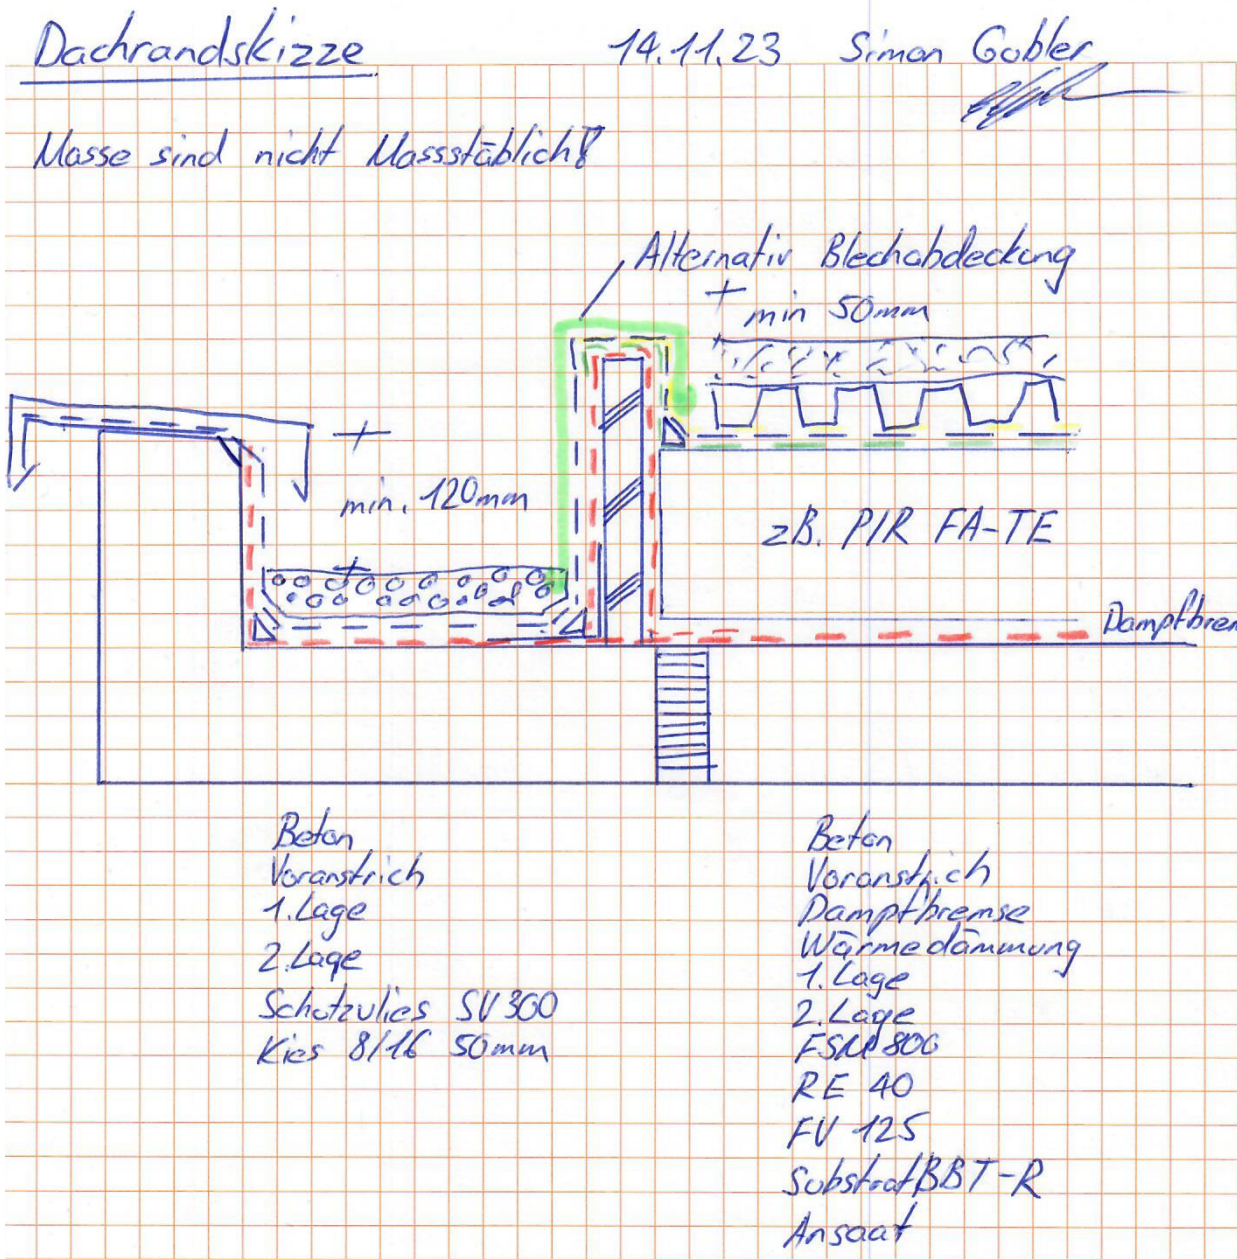 Dachrandskizze 14.11.23 Simon Gobler
Masse sind nicht Massstäblich!
Alternativ Blechabdeckung
min 50mm
min. 120mm
zB. PIR FA-TE
Dampfbrem
Beton
Voranstrich
1. Lage
2. Lage
Schutzvlies SV 300
Kies 8/16 50mm
Beton
Voranstrich
Dampfbremse
Wärmedämmung
1. Lage
2. Lage
FSM 800
RE 40
FV 125
Substrat BBT-R
Ansaat